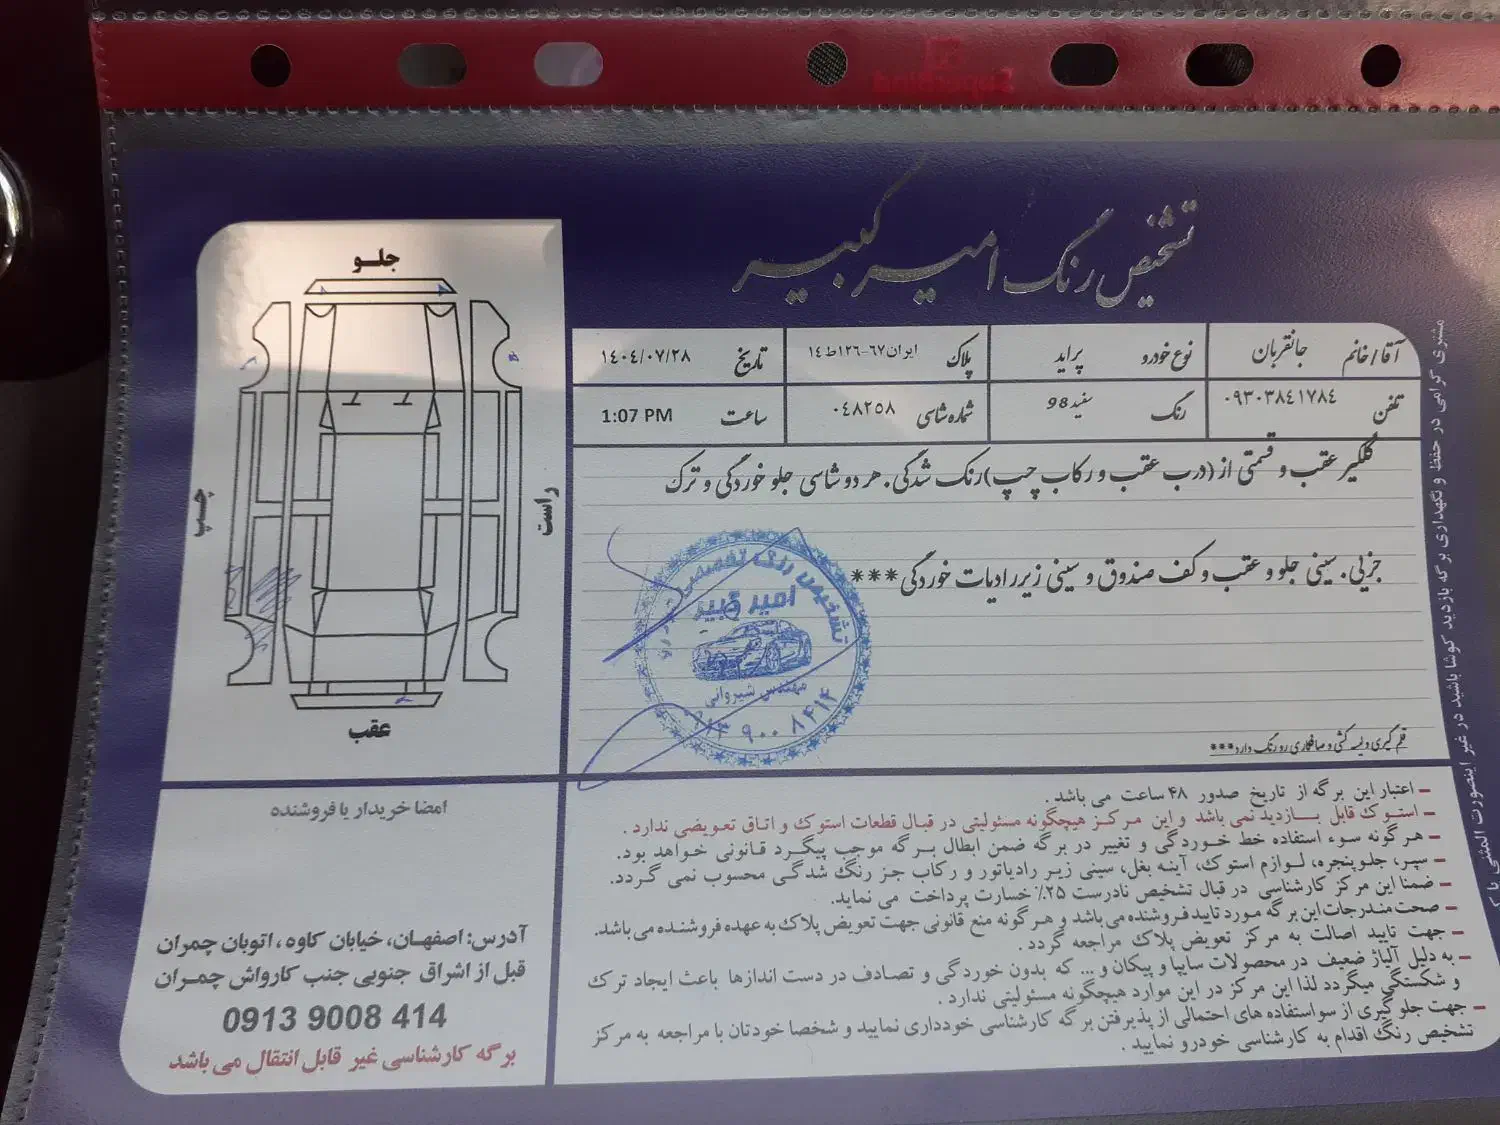 تشخیص رنگ امیرکبیر
آقا/خانم جانقربان
نوع خودرو پراید
پلاک ایران۶۷-۱۲۶ط۱۴
تاریخ ۱۴۰۴/۰۷/۲۸
تلفن ۰۹۳۰۳۸۴۱۷۸۴
رنگ سفید98
شماره شاسی ۰۴۸۲۵۸
ساعت 1:07 PM
گلگیر عقب و قسمتی از (درب عقب و رکاب چپ)رنگ شدگی. هر دو شاسی جلو خوردگی و ترک
جزیی. سینی جلو و عقب و کف صندوق و سینی زیر رادیات خوردگی***
قلم گیری و لیسه کشی و صافکاری رو رنگ دارد***
جلـو
راست
چپ
عقب
تشخیص رنگ تخصصی
امیر کبیر
مهندس شیروانی
۰۹۱۳ ۹۰۰۸۴۱۴
امضا خریدار یا فروشنده
آدرس: اصفهـان، خیابان کاوه ، اتوبان چمران
قبل از اشراق جنوبی جنب کارواش چمـران
0913 9008 414
برگه کارشناسی غیر قابل انتقال می باشد
– اعتبار این برگه از تاریخ صدور ۴۸ ساعت می باشد .
– استوک قابل بــازدید نمی باشد و این مرکز هیچگونه مسئولیتی در قبال قطعات استوک و اتاق تعویضی ندارد .
– هرگونه سوء استفاده خط خوردگی و تغییر در برگه ضمن ابطال بـرگه موجب پیگرد قـانونی خـواهد بود.
– سپر، جلو پنجره، لـوازم استوک، آینـه بغل، سینی زیـر رادیاتور و رکاب جـز رنگ شدگـی محسوب نمی گـردد.
– ضمنا این مرکز کارشناسی در قبال تشخیص نادرست ۲۵٪ خسارت پرداخت می نماید.
– صحت مندرجات این برگه مورد تایید فروشنده می باشد و هـرگونه منع قانونی جهت تعویض پلاک به عهده فروشنده می باشد.
– جهت تایید اصالت به مرکز تعویض پلاک مراجعه گردد .
– به دلیل آلیاژ ضعیف در محصولات سایپا و پیکان و... که بدون خوردگی و تصادف در دست اندازها باعث ایجاد ترک
و شکستگی میگردد لذا این مرکز در این موارد هیچگونه مسئولیتی ندارد .
– جهت جلوگیری از سواستفاده های احتمالی از پذیرفتن برگه کارشناسی خودداری نمایید و شخصا خودتان با مراجعه به مرکز
تشخیص رنگ اقدام به کارشناسی خودرو نمایید .
مشتری گرامی در حفظ و نگهداری برگه بازدید کوشا باشید در غیر اینصورت المثنی